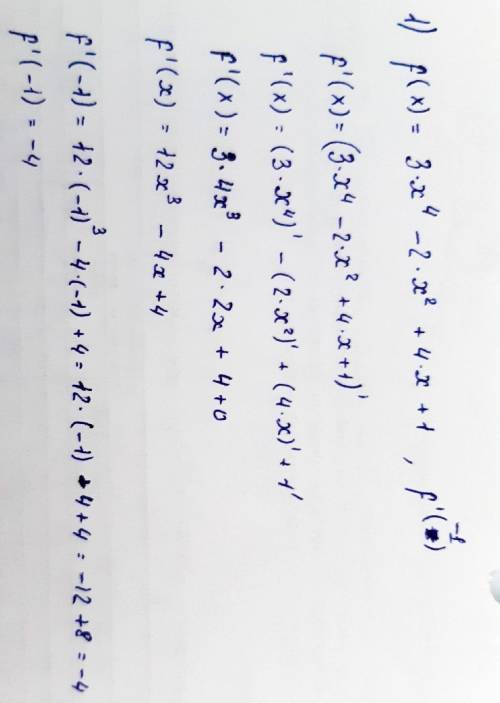 1) f(x) = 3·x⁴ − 2·x² + 4·x + 1 , f'(-1)
f'(x) = (3·x⁴ − 2·x² + 4·x + 1)'
f'(x) = (3·x⁴)' − (2·x²)' + (4·x)' + 1'
f'(x) = 3·4x³ − 2·2x + 4+0
f'(x) = 12x³ − 4x + 4
f'(-1) = 12·(-1)³ − 4·(-1) + 4 = 12·(-1) + 4+4 = -12 +8 = -4
f'(-1) = -4